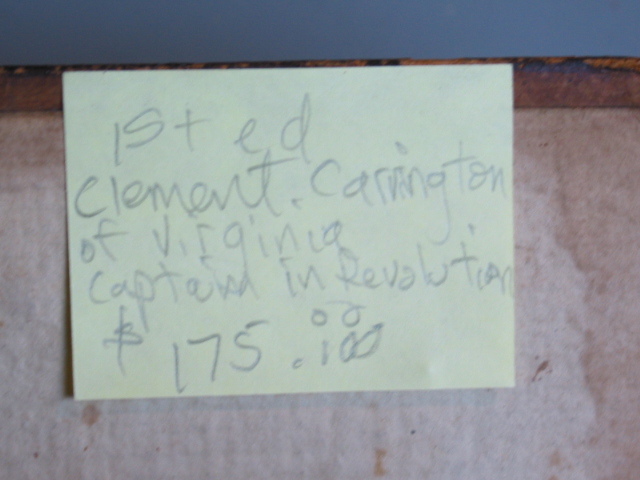 1st ed
Clement. Carrington
of Virginia
Captain in Revolution
$ 175.00